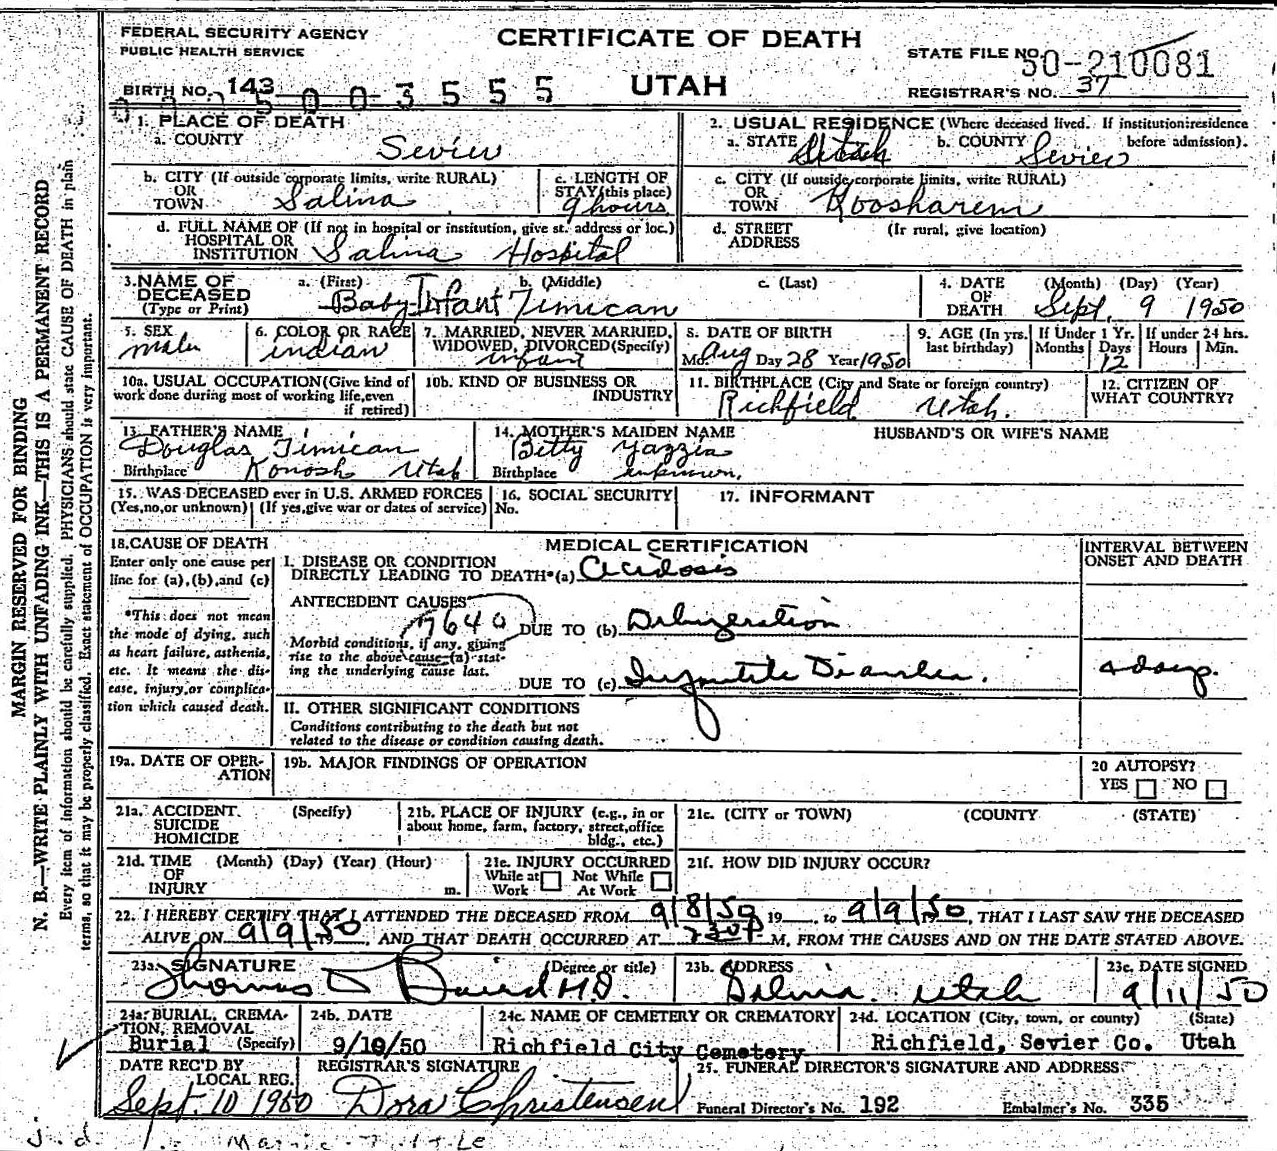 FEDERAL SECURITY AGENCY
PUBLIC HEALTH SERVICE
CERTIFICATE OF DEATH
UTAH
STATE FILE NO. 50-210081
REGISTRAR'S NO. 37
BIRTH NO. 143 5003555
1. PLACE OF DEATH
a. COUNTY Sevier
2. USUAL RESIDENCE (Where deceased lived. If institution:residence before admission).
a. STATE Utah b. COUNTY Sevier
b. CITY (If outside corporate limits, write RURAL)
OR
TOWN Salina
c. LENGTH OF
STAY (this place)
9 hours
c. CITY (If outside corporate limits, write RURAL)
OR
TOWN Koosharem
d. FULL NAME OF (If not in hospital or institution, give st. address or loc.)
HOSPITAL OR
INSTITUTION Salina Hospital
d. STREET (If rural, give location)
ADDRESS
3. NAME OF
DECEASED
(Type or Print)
a. (First) b. (Middle) c. (Last)
Baby Infant Timican
4. DATE (Month) (Day) (Year)
OF
DEATH Sept. 9 1950
5. SEX
male
6. COLOR OR RACE
indian
7. MARRIED, NEVER MARRIED,
WIDOWED, DIVORCED (Specify)
infant
8. DATE OF BIRTH
Mo. Aug Day 28 Year 1950
9. AGE (In yrs.
last birthday)
If Under 1 Yr.
Months Days
12
If under 24 hrs.
Hours Min.
10a. USUAL OCCUPATION (Give kind of
work done during most of working life, even
if retired)
10b. KIND OF BUSINESS OR
INDUSTRY
11. BIRTHPLACE (City and State or foreign country)
Richfield Utah.
12. CITIZEN OF
WHAT COUNTRY?
13. FATHER'S NAME
Douglas Timican
Birthplace Konosh Utah
14. MOTHER'S MAIDEN NAME
Betty Yazzia
Birthplace unknown.
HUSBAND'S OR WIFE'S NAME
15. WAS DECEASED ever in U.S. ARMED FORCES
(Yes, no, or unknown) (If yes, give war or dates of service)
16. SOCIAL SECURITY
No.
17. INFORMANT
18. CAUSE OF DEATH
Enter only one cause per
line for (a), (b), and (c)
*This does not mean
the mode of dying, such
as heart failure, asthenia,
etc. It means the dis-
ease, injury, or complica-
tion which caused death.
MEDICAL CERTIFICATION
INTERVAL BETWEEN
ONSET AND DEATH
I. DISEASE OR CONDITION
DIRECTLY LEADING TO DEATH*(a) Acidosis
ANTECEDENT CAUSES
7640
DUE TO (b)
Morbid conditions, if any, giving
rise to the above cause (a) stat-
ing the underlying cause last.
DUE TO (c) Infantile Diarrhea.
4 days.
II. OTHER SIGNIFICANT CONDITIONS
Conditions contributing to the death but not
related to the disease or condition causing death.
19a. DATE OF OPER-
ATION
19b. MAJOR FINDINGS OF OPERATION
20 AUTOPSY?
YES NO
21a. ACCIDENT (Specify)
SUICIDE
HOMICIDE
21b. PLACE OF INJURY (e.g., in or
about home, farm, factory, street, office
bldg., etc.)
21c. (CITY or TOWN) (COUNTY) (STATE)
21d. TIME (Month) (Day) (Year) (Hour)
OF
INJURY m.
21e. INJURY OCCURRED
While at Not While
Work At Work
21f. HOW DID INJURY OCCUR?
22. I HEREBY CERTIFY THAT I ATTENDED THE DECEASED FROM 9/8/50 19 , to 9/9/50, THAT I LAST SAW THE DECEASED
ALIVE ON 9/9/50 19 , AND THAT DEATH OCCURRED AT 730P M, FROM THE CAUSES AND ON THE DATE STATED ABOVE.
23a. SIGNATURE (Degree or title)
Thomas Baird M.D.
23b. ADDRESS
Salina. Utah
23c. DATE SIGNED
9/11/50
24a. BURIAL, CREMA-
TION, REMOVAL
Burial (Specify)
24b. DATE
9/10/50
24c. NAME OF CEMETERY OR CREMATORY
Richfield City Cemetery
24d. LOCATION (City, town, or county) (State)
Richfield, Sevier Co. Utah
DATE REC'D BY
LOCAL REG.
Sept. 10 1950
REGISTRAR'S SIGNATURE
Dora Christensen
25. FUNERAL DIRECTOR'S SIGNATURE AND ADDRESS
Funeral Director's No. 192 Embalmer's No. 335
MARGIN RESERVED FOR BINDING
N. B.—WRITE PLAINLY WITH UNFADING INK—THIS IS A PERMANENT RECORD
Every item of information should be carefully supplied. PHYSICIANS should state CAUSE OF DEATH in plain
terms, so that it may be properly classified. Exact statement of OCCUPATION is very important.